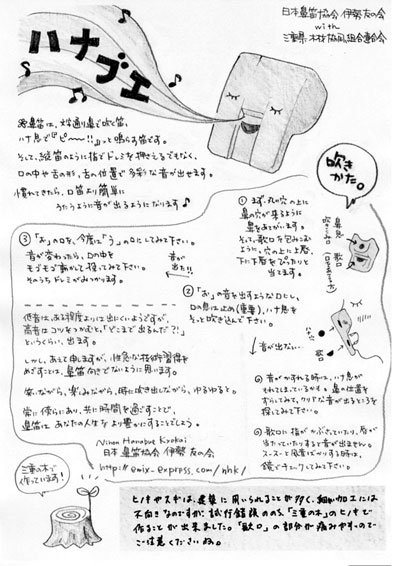 日本鼻笛協会 伊勢友の会
with
三重県木材協同組合連合会
ハナブエ
鼻笛は、文字通り鼻で吹く笛。
ハナ息で『ピ〜〜!!』っと鳴らす笛です。
そして、縦笛のように指でドレミを押さえるでもなく、
口の中や舌の形、舌の位置で多彩な音が出せます。
慣れてきたら、口笛より簡単に
うたうように音が出るようになります♪
吹きかた。
① まず、丸い穴の上に
鼻の穴が来るように
鼻をあてがいます。
そして、歌口を包みこむ
ように、穴の上に上唇、
下に下唇をぴったりと
当てます。
鼻息
吹きこみ口
歌口
② 「お」の音を出すような口にし、
口の息は止め(重要)、ハナ息を
そっと吹き込んで下さい。
音が出た!!
③ 「お」の口を、今度は「う」の口にしてみて下さい。
音が変わったら、口の中を
モゴモゴ動かして探してみて下さい。
そのうちドレミがみつかります。
ハナ
歌口
音が出ない…
低音は、ある程度よりは出にくいようですが、
高音はコツをつかむと、「どこまで出るんだ?!」
というくらい、出ます。
しかし、あえて申しますが、性急な技術習得を
めざすことは、鼻笛向きでないように思います。
笑いながら、楽しみながら、時に吹き出しながら、ゆるゆると。
常に傍らにあり、共に時間を過ごすことで、
鼻笛は、あなたの人生をより豊かにすることでしょう。
Nihon Hanabue Kyokai
日本鼻笛協会 伊勢友の会
http://emix-express.com/nhk/
④ 音がかすれる時は、ハナ息が
もれてしまっているかも。鼻の位置を
ずらしてみて、クリアな音が出るところを
探してみて下さい。
⑤ 歌口に指がかぶっていたり、唇が
当たっていたりすると音が出ません。
スースーと風音ばかりする時は、
鏡でチェックしてみて下さい。
三重の木で
作っています!
ヒノキやスギは、建築に用いられることが多く、細かい加工には
不向きなのですが、試行錯誤ののち、「三重の木」のヒノキで
作ることが出来ました。「歌口」の部分が痛みやすいので
ご注意くださいね。